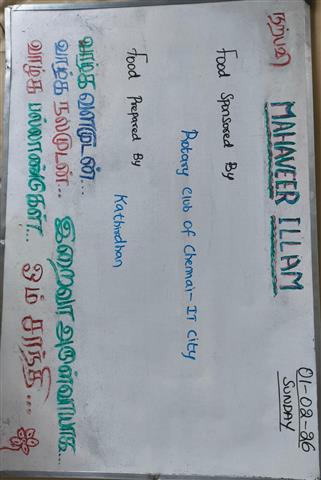 நற்பவி
MAHAVEER ILLAM
01-02-26
SUNDAY
Food Sponsored By
Rotary Club of Chennai-IT City
Food Prepared By
Kathirdhan
வாழ்க வளமுடன்...
வாழ்க நலமுடன்... இறைவா அருள்வாயாக...
வாழ்க பல்லாண்டுகள்... ஓம் சாந்தி...